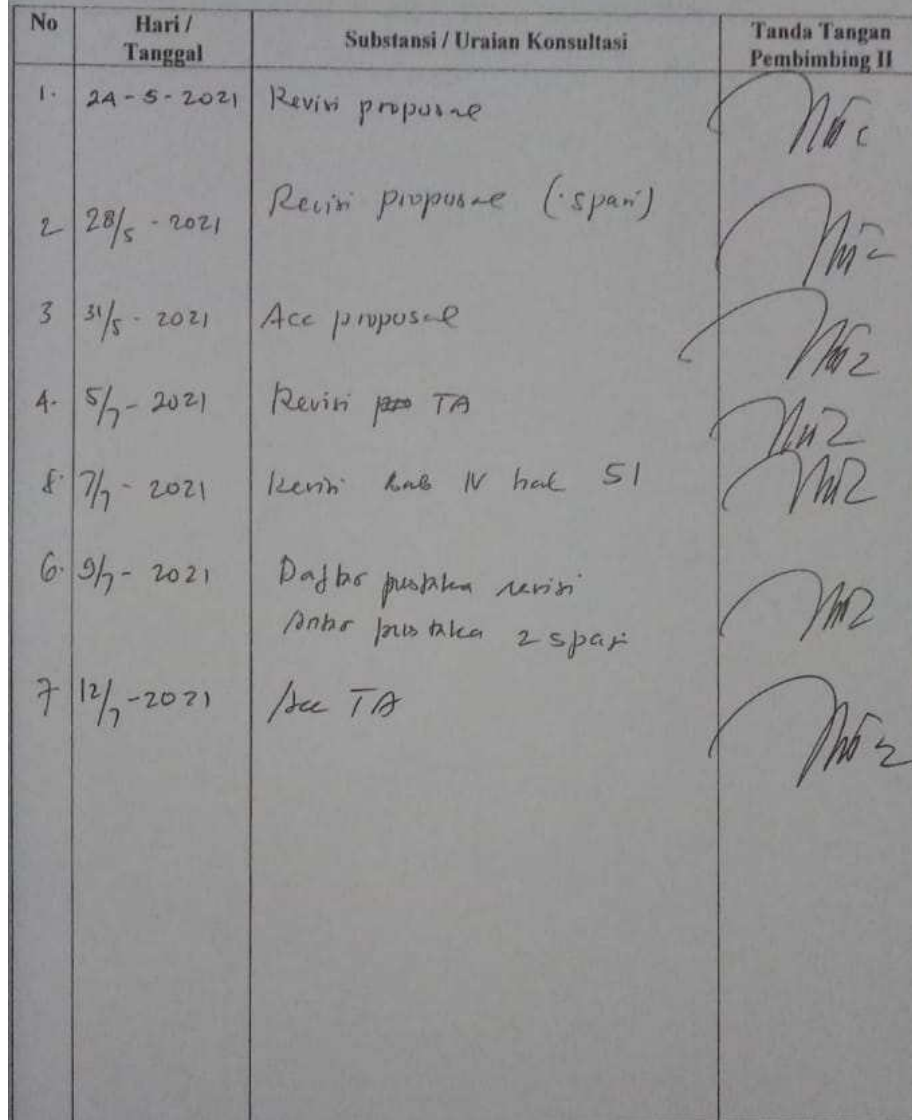 No Hari / Tanggal Substansi / Uraian Konsultasi Tanda Tangan Pembimbing II
1. 24-5-2021 Revisi proposal
2 28/5-2021 Revisi proposal (spasi)
3 31/5-2021 Acc proposal
4. 5/7-2021 Revisi TA
7/7-2021 Revisi bab IV hal 51
6. 9/7-2021 Daftar pustaka revisi
Antar pustaka 2 spasi
7 12/7-2021 Acc TA